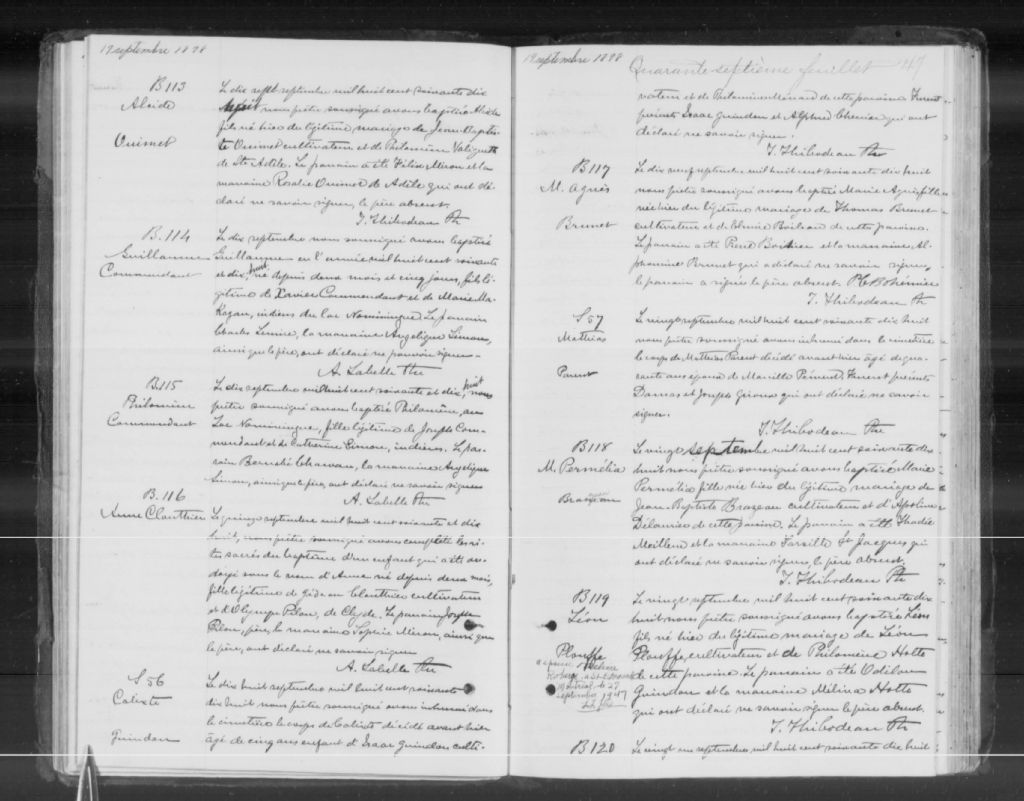 17 septembre 1878
B113
Alcide
Ouimet
Le dix sept septembre mil huit cent soixante dix
huit nous prêtre soussigné avons baptisé Alcide
fils né hier du légitime mariage de Jean-Baptis-
te Ouimet cultivateur et de Philomène Valiquette
de Ste Adèle. Le parrain a été Félix Miron et la
marraine Rosalie Ouimet de Adèle qui ont dé-
claré ne savoir signer, le père absent.
T. Thibodeau Ptre
B.114
Guillaume
Commandant
Le dix septembre nous soussigné avons baptisé
Guillaume en l'année mil huit cent soixante
et dix huit, né depuis deux mois et cinq jours, fils lé-
gitime de Xavier Commandant et de Marie Ma-
Kagan, indiens du lac Nominingue. Le parrain
Charles Lemire, la marraine Angelique Simon,
ainsi que le père, ont déclaré ne pouvoir signer.
A. Labelle Ptre
B.115
Philomène
Commandant
Le dix septembre mil huit cent soixante et dix huit, nous
prêtre soussigné avons baptisé Philomène, au
Lac Nominingue, fille légitime de Joseph Com-
mandant et de Catherine Simon, indiens. Le par-
rain Chawan, la marraine Angelique
Simon, ainsi que le père, ont déclaré ne savoir signer
A. Labelle Ptre
B.116
Anne Clouthier
Le quinze septembre mil huit cent soixante et dix
huit, nous prêtre soussigné avons complété les ri-
tes sacrés du baptême d'un enfant qui a été on-
doyé sous le nom d'Anne, né depuis deux mois,
fille légitime de Gédéon Clouthier cultivateur
et d'Olympe Pilon, de Clyde. Le parrain Joseph
Pilon, père, la marraine Sophie Miron, ainsi que
le père, ont déclaré ne savoir signer
A. Labelle Ptre
S 56
Calixte
Guindon
Le dix huit septembre mil huit cent soixante
dix huit nous prêtre soussigné avons inhumé dans
le cimetière le corps de Calixte décédé avant hier
âgé de cinq ans enfant d'Isaac Guindon culti-
19 septembre 1878
Quarante-septième feuillet 47
vateur et de Philomène Ménard de cette paroisse. Furent
présents Isaac Guindon et Alphred Chenier qui ont
déclaré ne savoir signer.
T. Thibodeau Ptre
B117
M. Agnès
Brunet
Le dix neuf septembre mil huit cent soixante dix huit
nous prêtre soussigné avons baptisé Marie Agnès fille
née hier du légitime mariage de Thomas Brunet
cultivateur et de Edmire Boileau de cette paroisse.
Le parrain a été René et la marraine Al-
phonsine Brunet qui a déclaré ne savoir signer,
le parrain a signé le père absent.
T. Thibodeau Ptre
S 57
Mathias
Parent
Le vingt septembre mil huit cent soixante dix huit
nous prêtre soussigné avons inhumé dans le cimetière
le corps de Mathias Parent décédé avant hier âgé de qua-
rante ans époux de Furent présents
Damas et Joseph Giroux qui ont déclaré ne savoir
signer.
T. Thibodeau Ptre
B118
M. Permélia
Brazeau
Le vingt septembre mil huit cent soixante dix
huit nous prêtre soussigné avons baptisé Marie
Permélia fille née hier du légitime mariage de
Jean-Baptiste Brazeau cultivateur et d'Apolline
Délauriers de cette paroisse. Le parrain a été Thadée
Meilleur et la marraine Tarsille St Jacques qui
ont déclaré ne savoir signer, le père absent.
T. Thibodeau Ptre
B119
Léon
Plouffe
a épousé Hélène
à St Edouard
Montréal le 27
septembre 1947
Le vingt septembre mil huit cent soixante dix
huit nous prêtre soussigné avons baptisé Léon
fils né hier du légitime mariage de Léon
Plouffe, cultivateur et de Philomène Hotte
de cette paroisse. Le parrain a été Odilon
Guindon et la marraine Mélina Hotte
qui ont déclaré ne savoir signer le père absent.
T. Thibodeau Ptre
B120
Le vingt un septembre mil huit cent soixante dix huit